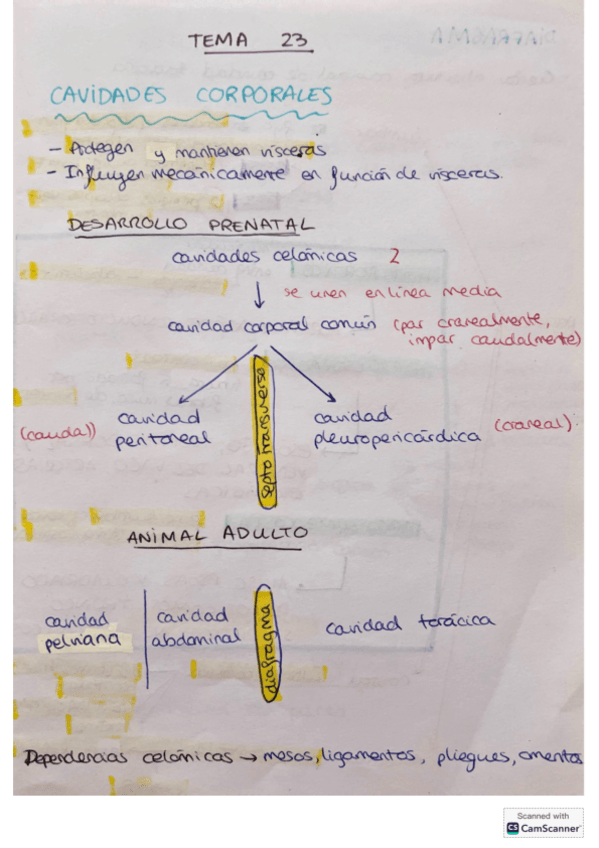 TEMA 23
CAVIDADES CORPORALES
- Protegen y mantienen vísceras
- Influyen mecánicamente en función de vísceras.
DESARROLLO PRENATAL
cavidades celómicas 2
se unen en línea media
cavidad corporal común (par cranealmente,
impar caudalmente)
(caudal)
cavidad
peritoneal
septo transverso
cavidad
pleuropericárdica
(craneal)
ANIMAL ADULTO
cavidad
pelviana
cavidad
abdominal
diafragma
cavidad torácica
Dependencias celómicas → mesos, ligamentos, pliegues, omentos
Scanned with
CS CamScanner